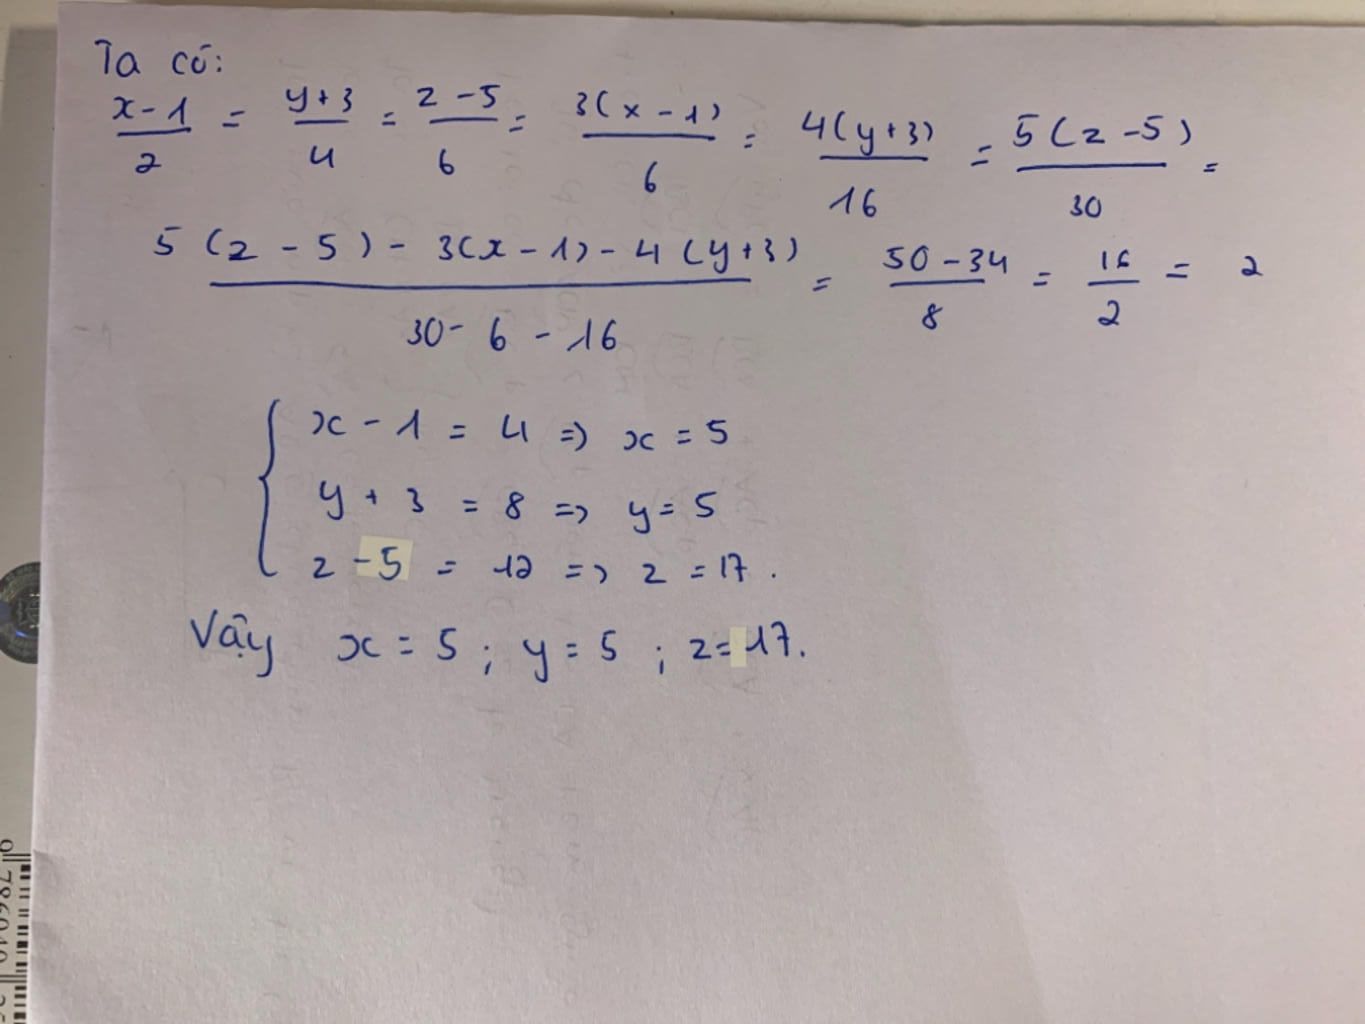 Ta có:
x-1/2 = y+3/4 = z-5/6 = 3(x-1)/6 = 4(y+3)/16 = 5(z-5)/30 =
5(z-5)-3(x-1)-4(y+3)/30-6-16 = 50-34/8 = 16/2 = 2
x-1 = 4 => x = 5
y+3 = 8 => y = 5
z-5 = 12 => z = 17.
Vậy x = 5 ; y = 5 ; z = 17.